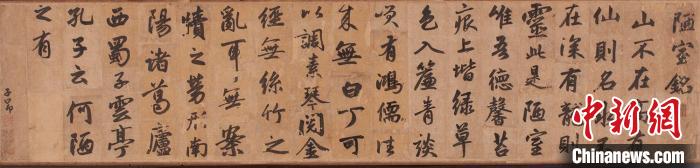 陋室銘
山不在高有
仙則名水不
在深有龍則
靈此是陋室
唯吾德馨苔
痕上堦緑草
色入簾青談
笑有鴻儒往
来無白丁可
以調素琴閲金
經無絲竹之
亂耳無案
牘之勞形南
陽諸葛廬
西蜀子雲亭
孔子云何陋
之有
子昂
中新网
Chinanews.com